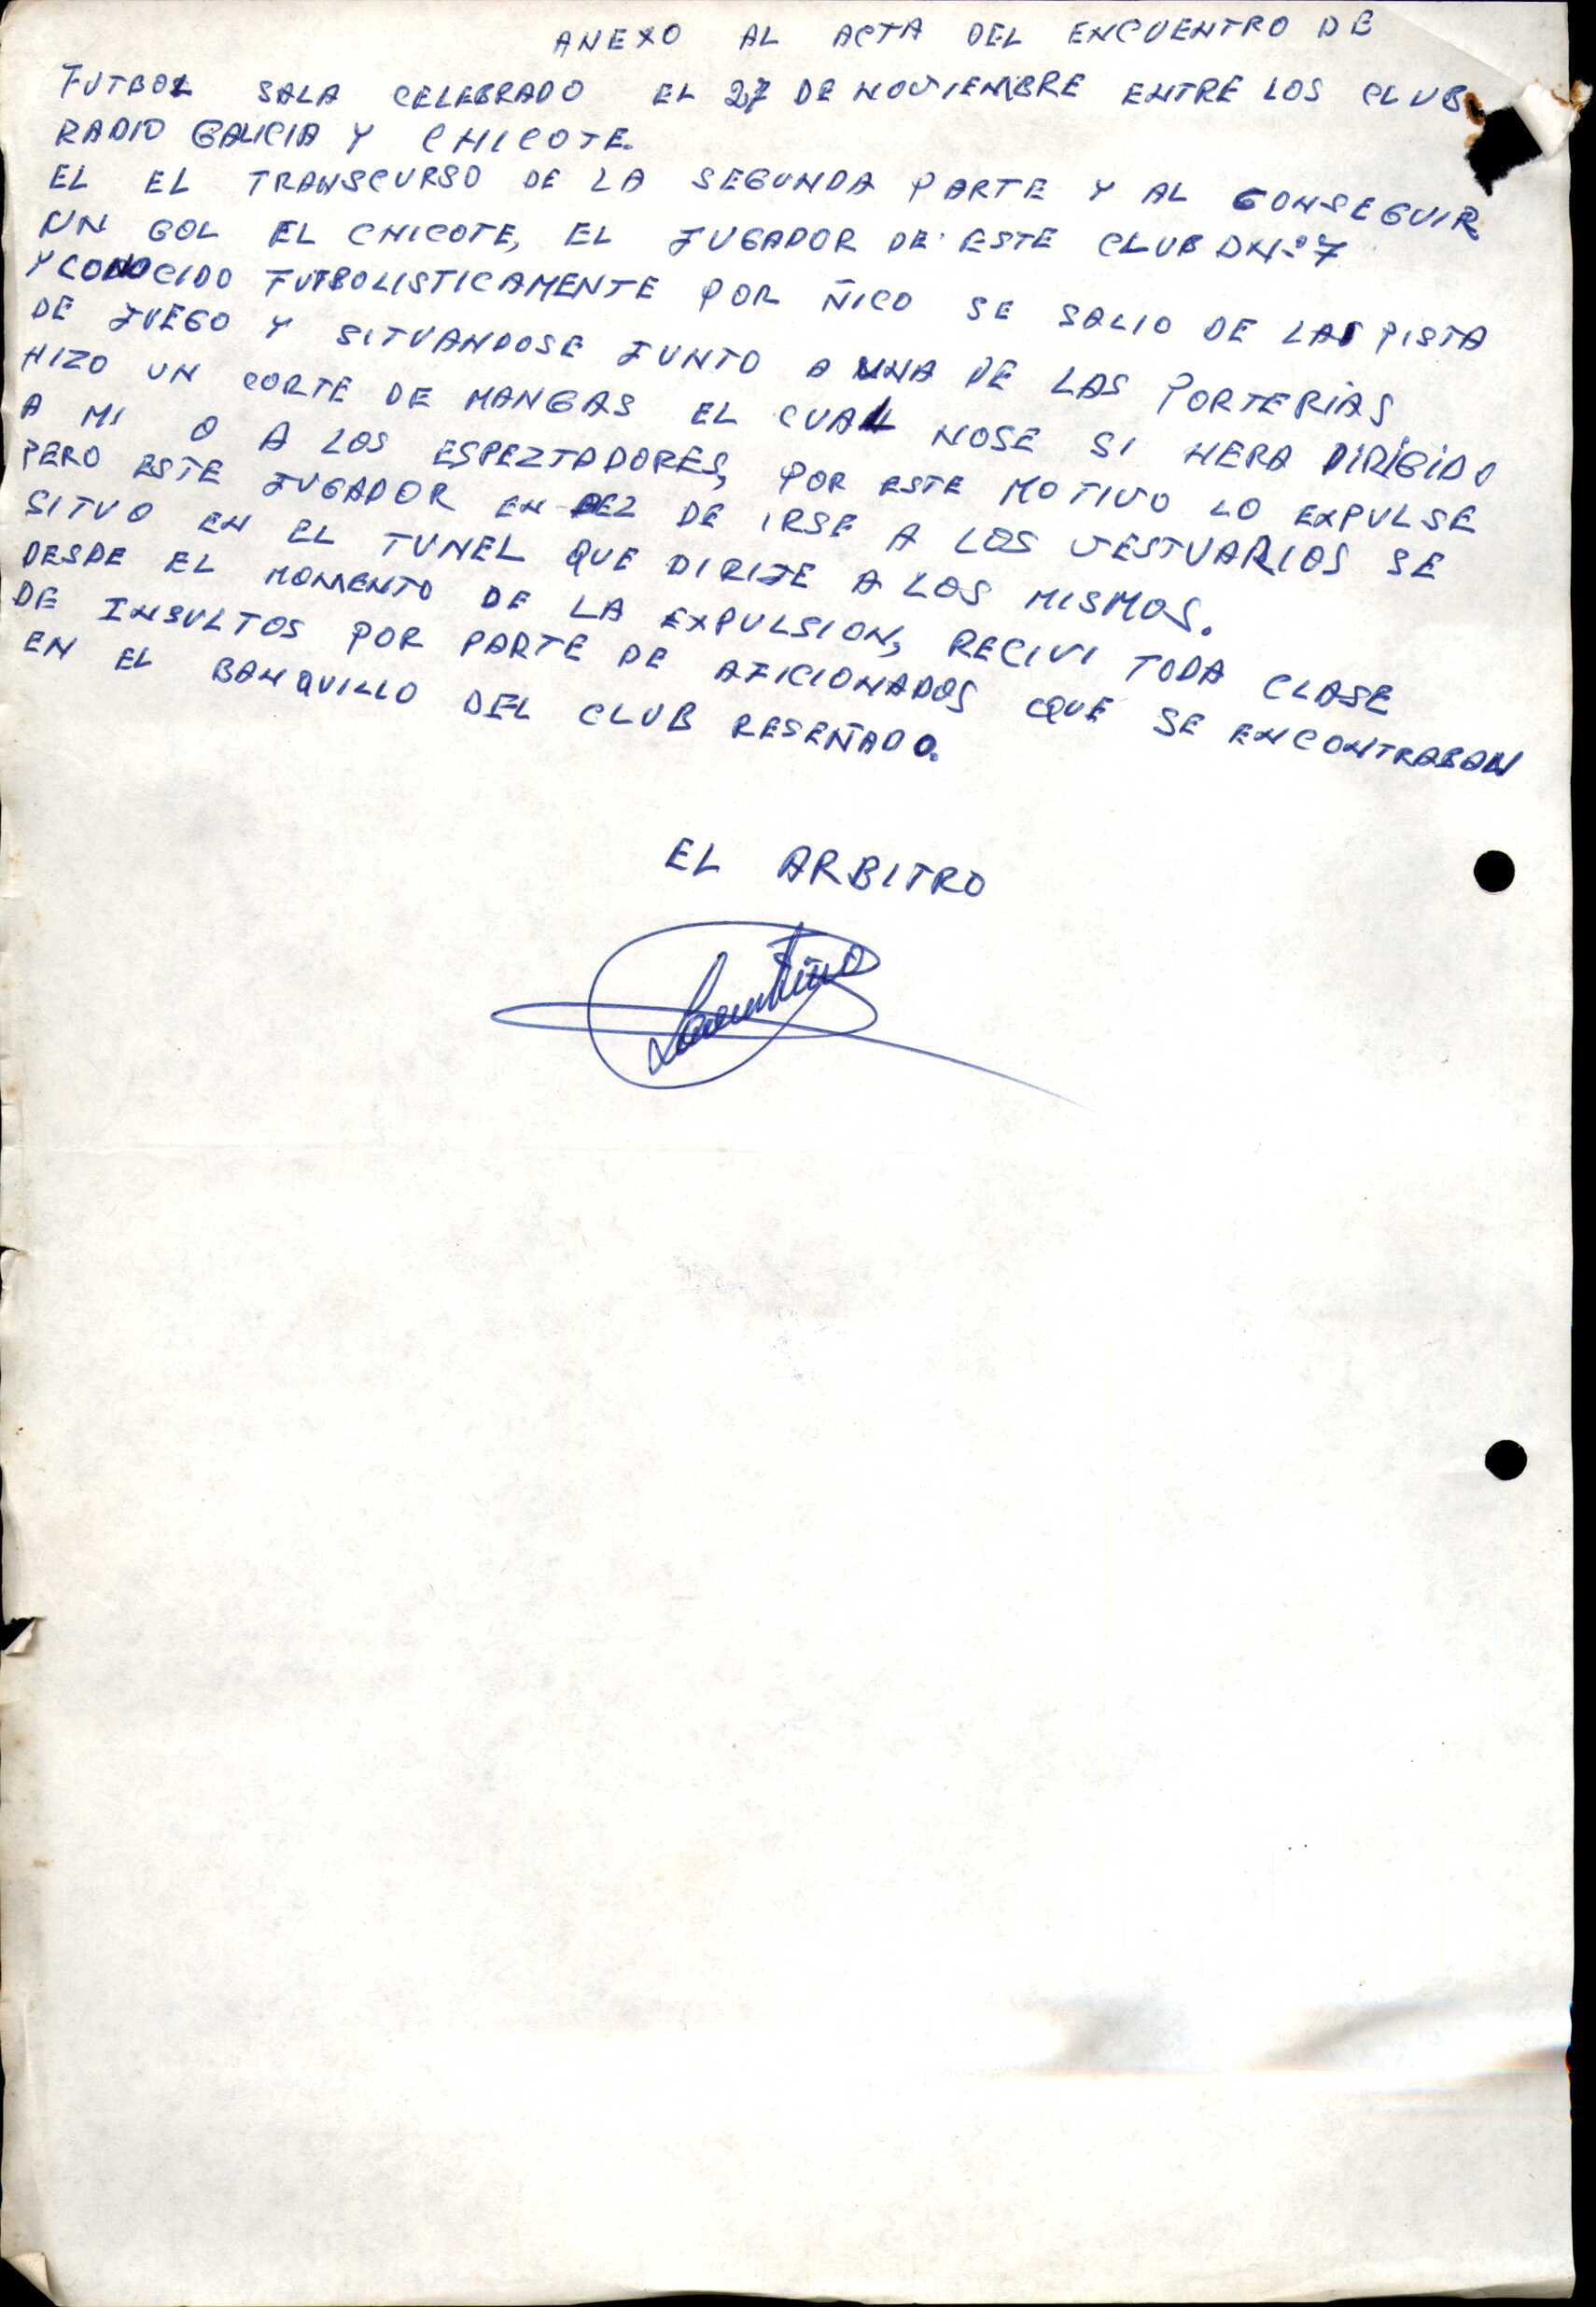 ANEXO AL ACTA DEL ENCUENTRO DE
FUTBOL SALA CELEBRADO EL 27 DE NOVIEMBRE ENTRE LOS CLUB
RADIO GALICIA Y CHICOTE.
EL EL TRANSCURSO DE LA SEGUNDA PARTE Y AL CONSEGUIR
UN GOL EL CHICOTE, EL JUGADOR DE ESTE CLUB DNº 7
Y CONOCIDO FUTBOLISTICAMENTE POR ÑICO SE SALIO DE LA PISTA
DE JUEGO Y SITUANDOSE JUNTO A UNA DE LAS PORTERIAS
HIZO UN CORTE DE MANGAS EL CUAL NOSE SI HERA DIRIGIDO
A MI O A LOS ESPEZTADORES, POR ESTE MOTIVO LO EXPULSE
PERO ESTE JUGADOR EN VEZ DE IRSE A LOS VESTUARIOS SE
SITUO EN EL TUNEL QUE DIRIJE A LOS MISMOS.
DESDE EL MOMENTO DE LA EXPULSION, RECIVI TODA CLASE
DE INSULTOS POR PARTE DE AFICIONADOS QUE SE ENCONTRABAN
EN EL BANQUILLO DEL CLUB RESEÑADO.
EL ARBITRO